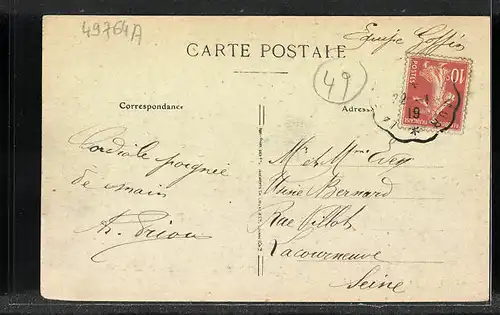 49764A
Equipe Goffin
CARTE POSTALE
49
10
POSTES
19
Correspondance
Adresse
Cordiale poignée
de main
Mr et Mme Evey
Usine Bernard
Rue Villot
Lacourneuve
Seine